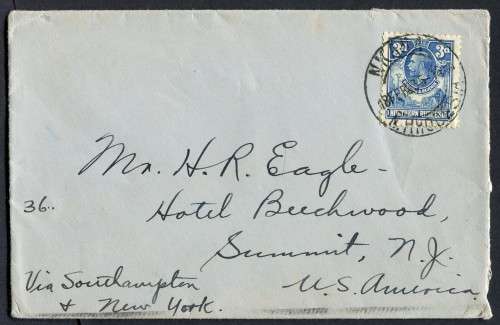 3d
NORTHERN RHODESIA
Mr. H. R. Eagle -
36..
Hotel Beechwood,
Summit, N.J.
Via Southampton
U.S. America.
& New York.